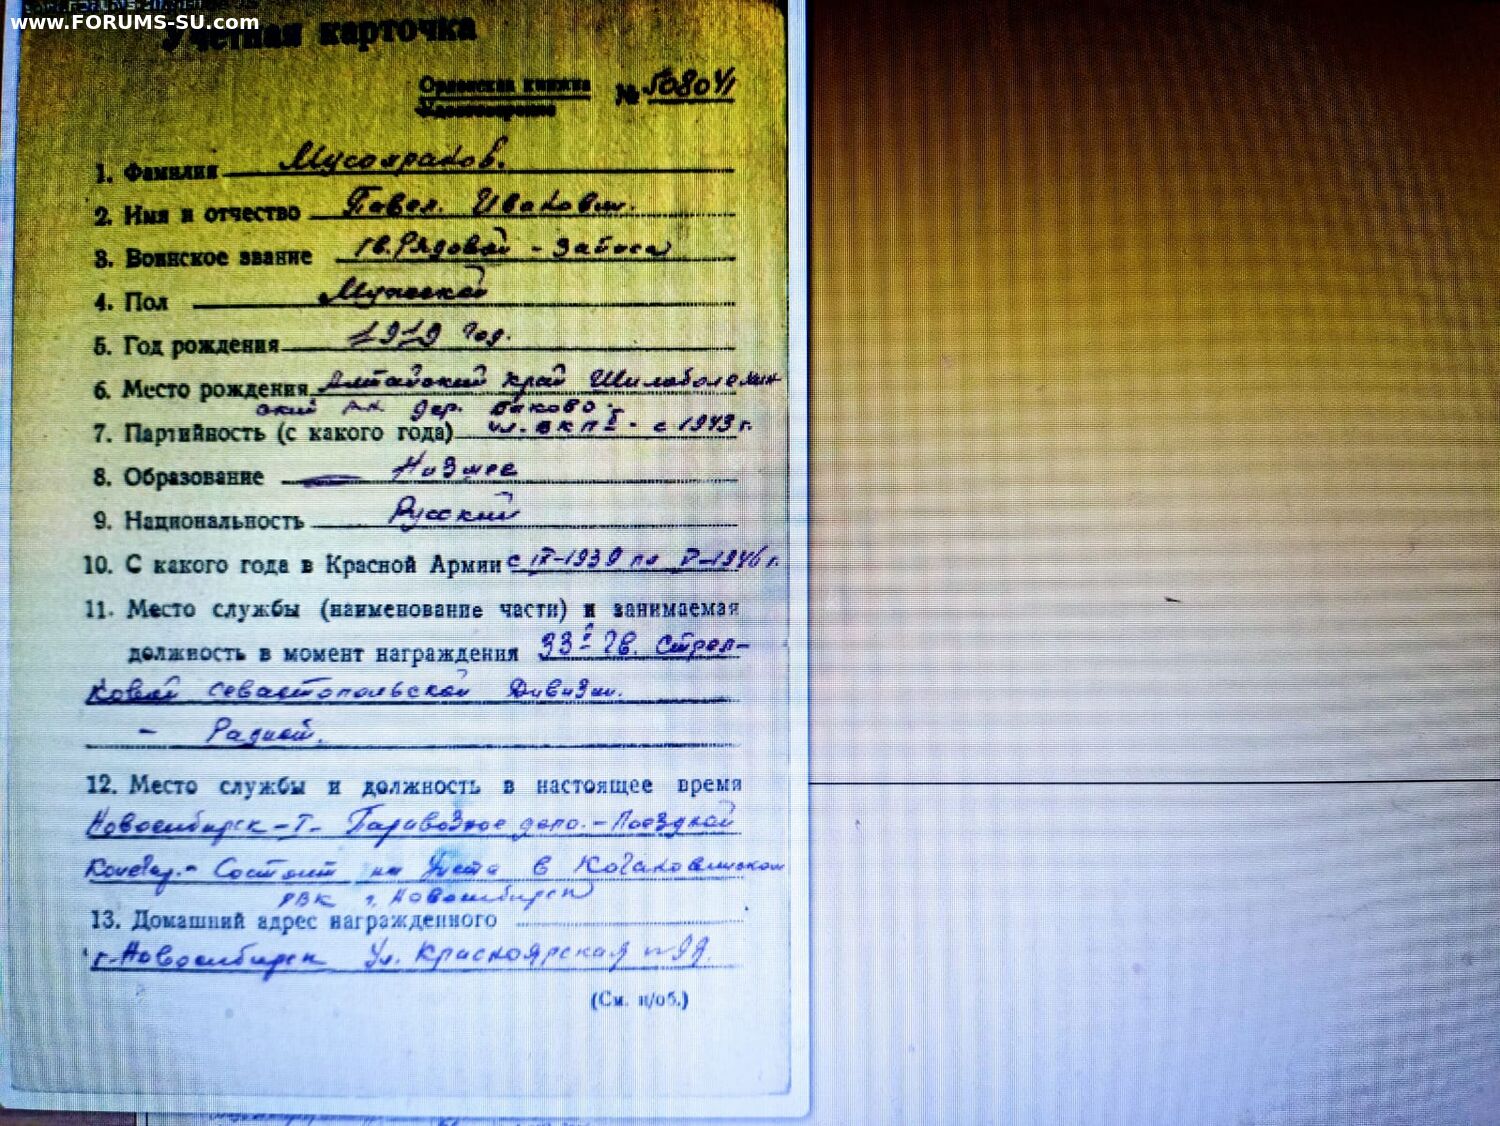 www.FORUMS-SU.com
Учетная карточка
Орденская книжка
Удостоверение
№
1. Фамилия
2. Имя и отчество Павел. Иванович.
3. Воинское звание гв. Рядовой - запаса
4. Пол Мужской
5. Год рождения 1919 год.
6. Место рождения Алтайский край
ский дер.
7. Партийность (с какого года) с 1943 г.
8. Образование Низшее
9. Национальность Русский
10. С какого года в Красной Армии с 1939 по 1946 г.
11. Место службы (наименование части) и занимаемая
должность в момент награждения гв. Стрел-
ковой Севастопольской Дивизии.
-
12. Место службы и должность в настоящее время
Новосибирск-Т- Паровозное депо. - Поездной
Кочегар. - Состоит на учете в
РВК г. Новосибирск
13. Домашний адрес награжденного
г. Новосибирск Ул. Красноярская
(См. н/об.)